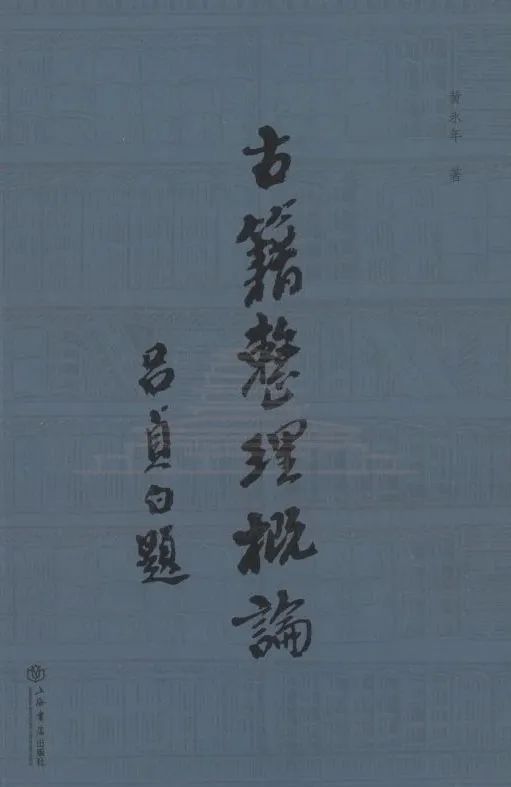 黄永年 著
古籍整理概論
吕貞白題
上海書店出版社